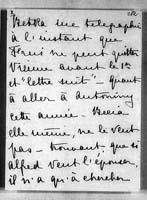 me telegraphie
à l'instant que
ne peut quitter
Vienne avant le 1er
et "lettre suit" Quant
à aller à Antoniny
cette année.
elle même, ne le veut
pas - trouvant que si
alfred veut l'épouser,
il n'a qu'à chercher